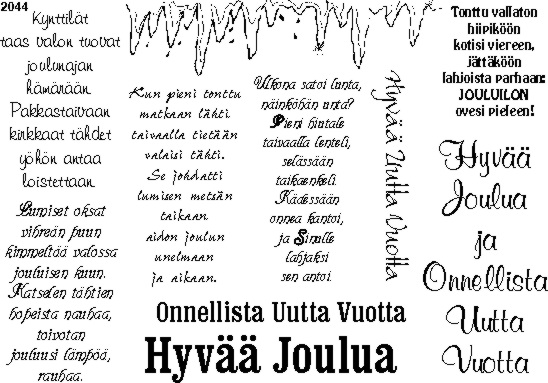 2044
Kynttilät
taas valon tuovat
joulunajan
hämärään.
Pakkastaivaan
kirkkaat tähdet
yöhön antaa
loistettaan.
Lumiset oksat
vihreän puun
kimmeltää valossa
jouluisen kuun.
Katselen tähtien
hopeista nauhaa,
toivotan
jouluusi lämpöä,
rauhaa.
Kun pieni tonttu
matkaan lähti
taivaalla tietään
valaisi tähti.
Se johdatti
lumisen metsän
taikaan
aidon joulun
unelmaan
ja aikaan.
Ulkona satoi lunta,
näinköhän unta?
Pieni hiutale
taivaalla lenteli,
selässään
taikaenkeli.
Kädessään
onnea kantoi,
ja Sinulle
lahjaksi
sen antoi.
Hyvää Uutta Vuotta
Tonttu vallaton
hiipiköön
kotisi viereen,
jättäköön
lahjoista parhaan:
JOULUILON
ovesi pieleen!
Hyvää
Joulua
ja
Onnellista
Uutta
Vuotta
Onnellista Uutta Vuotta
Hyvää Joulua